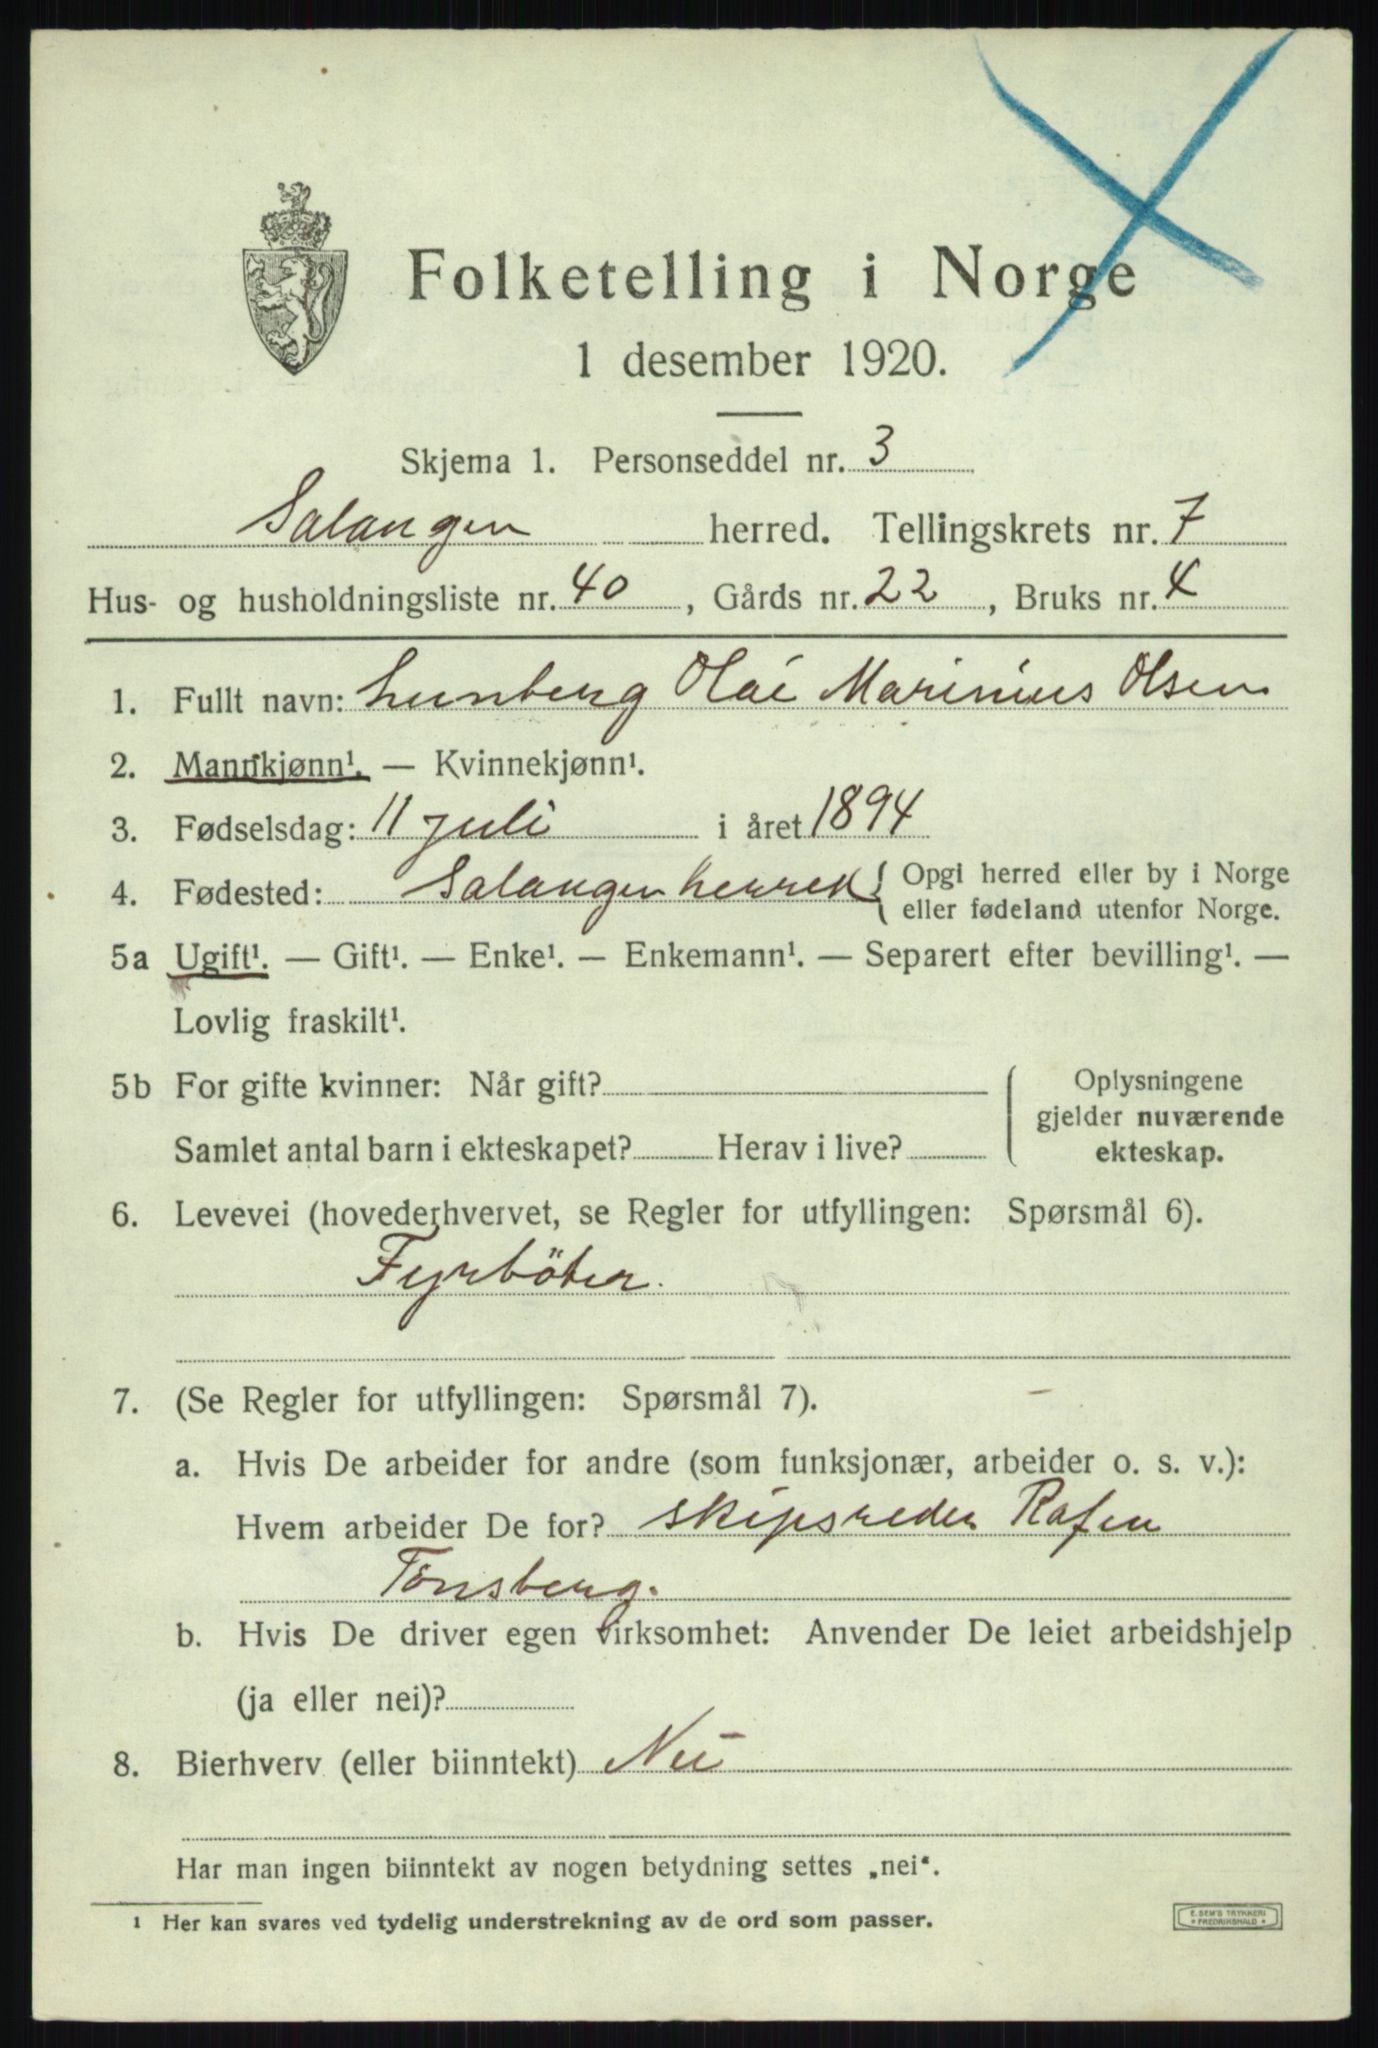 Folketelling i Norge
1 desember 1920.
Skjema 1. Personseddel nr. 3
Salangen herred. Tellingskrets nr. 7
Hus- og husholdningsliste nr. 40, Gårds nr. 22, Bruks nr. 4
1. Fullt navn: Lunberg Olai Marinius Olsen
2. Mannkjønn¹. — Kvinnekjønn¹.
3. Fødselsdag: 11 juli i året 1894
4. Fødested: Salangen herred { Opgi herred eller by i Norge
eller fødeland utenfor Norge.
5a Ugift¹. — Gift¹. — Enke¹. — Enkemann¹. — Separert efter bevilling¹. —
Lovlig fraskilt¹.
5b For gifte kvinner: Når gift?
Samlet antal barn i ekteskapet? Herav i live?
Oplysningene
gjelder nuværende
ekteskap.
6. Levevei (hovederhvervet, se Regler for utfyllingen: Spørsmål 6).
Fyrböter.
7. (Se Regler for utfyllingen: Spørsmål 7).
a. Hvis De arbeider for andre (som funksjonær, arbeider o. s. v.):
Hvem arbeider De for? skipsreder Rafen
Tönsberg.
b. Hvis De driver egen virksomhet: Anvender De leiet arbeidshjelp
(ja eller nei)?
8. Bierhverv (eller biinntekt) Nei
Har man ingen biinntekt av nogen betydning settes „nei“.
¹ Her kan svares ved tydelig understrekning av de ord som passer.
E. SEM'S TRYKKERI
FREDRIKSHALD